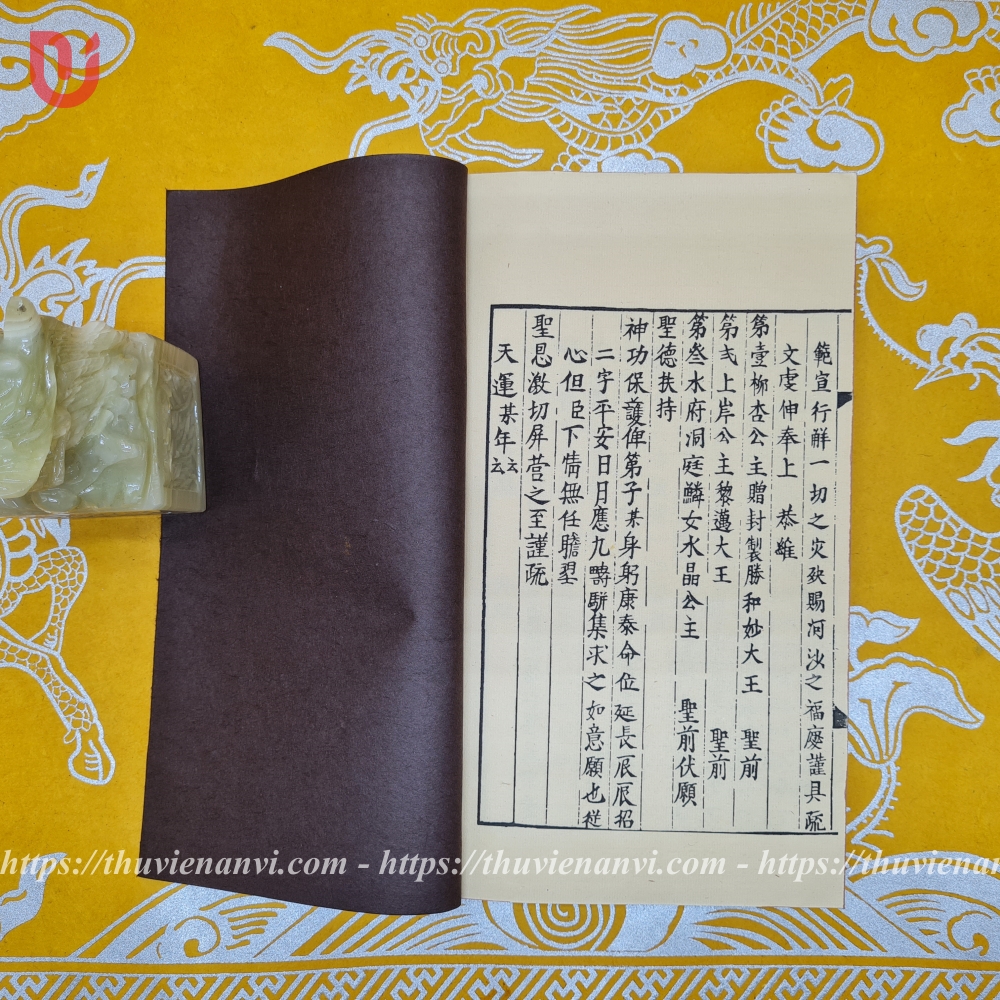 範宣行觧一切之灾殃賜河沙之福慶謹具疏
文虔伸奉上 恭維
第壹柳杏公主贈封製勝和妙大王 聖前
第弍上岸公主黎邁大王 聖前
第叁水府洞庭鱗女水晶公主 聖前伏願
聖德扶持
神功保護俾第子某身躬康泰命位延長辰辰招
二字平安日月應九疇駢集求之如意願也從
心但臣下情無任瞻
聖恩激切屏营之至謹疏
天運某年云云
https://thuvienanvi.com - https://thuvienanvi.com - https://thuviena